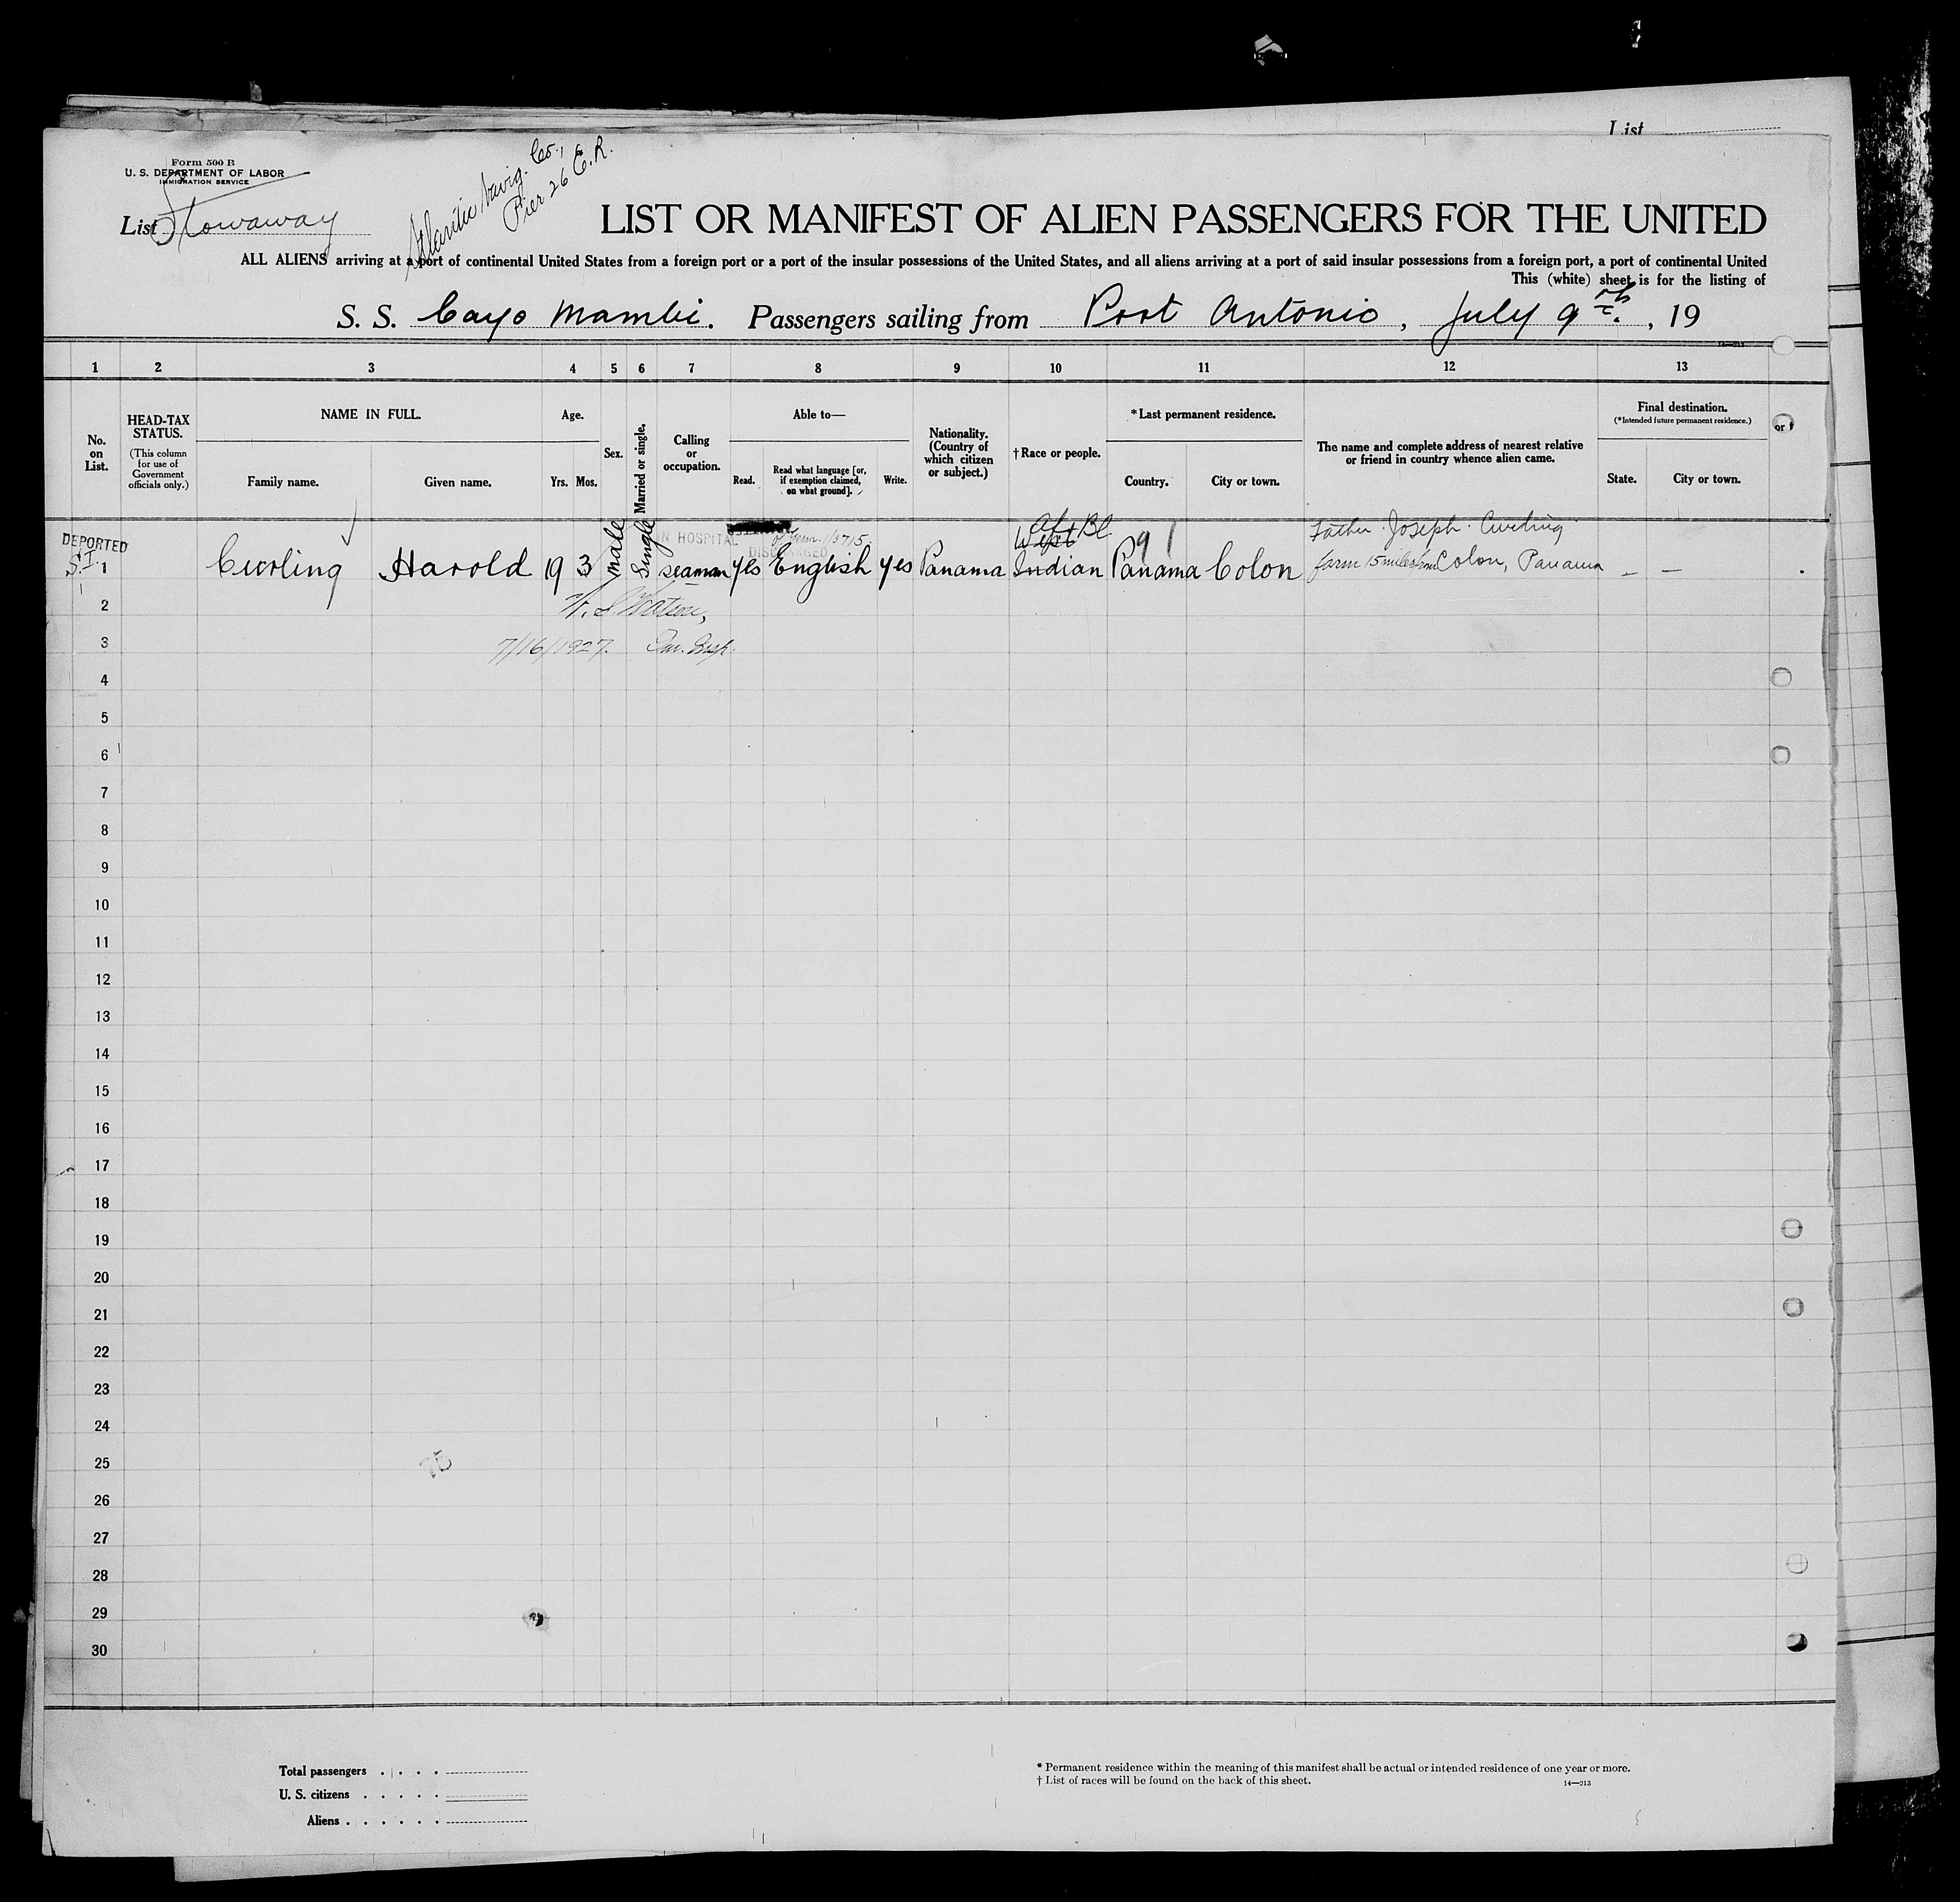 List
Form 500 B
U. S. DEPARTMENT OF LABOR
IMMIGRATION SERVICE
List Stowaway
Atlantic Navig. Co.,
Pier 26 E.R.
LIST OR MANIFEST OF ALIEN PASSENGERS FOR THE UNITED
ALL ALIENS arriving at a port of continental United States from a foreign port or a port of the insular possessions of the United States, and all aliens arriving at a port of said insular possessions from a foreign port, a port of continental United
This (white) sheet is for the listing of
S. S. Cayo Mambi. Passengers sailing from Port Antonio, July 9th., 19
14—213
1 2 3 4 5 6 7 8 9 10 11 12 13
No. on List.
HEAD-TAX STATUS.
(This column for use of Government officials only.)
NAME IN FULL.
Family name. Given name.
Age.
Yrs. Mos.
Sex.
Married or single.
Calling or occupation.
Able to—
Read. Read what language [or, if exemption claimed, on what ground]. Write.
Nationality. (Country of which citizen or subject.)
† Race or people.
*Last permanent residence.
Country. City or town.
The name and complete address of nearest relative or friend in country whence alien came.
Final destination.
(*Intended future permanent residence.)
State. City or town.
or
DEPORTED
S.I.
IN HOSPITAL
DISCHARGED
Af. Bl.
91
Father Joseph Curling
1 Curling Harold 19 3 male Single seaman yes English yes Panama West Indian Panama Colon farm 15 miles from Colon, Panama — —
2
7/16/1927. Im. Insp.
3
4
5
6
7
8
9
10
11
12
13
14
15
16
17
18
19
20
21
22
23
24
25
26
27
28
29
30
Total passengers . . . .
U. S. citizens . . . . .
Aliens . . . . . .
* Permanent residence within the meaning of this manifest shall be actual or intended residence of one year or more.
† List of races will be found on the back of this sheet.
14—213